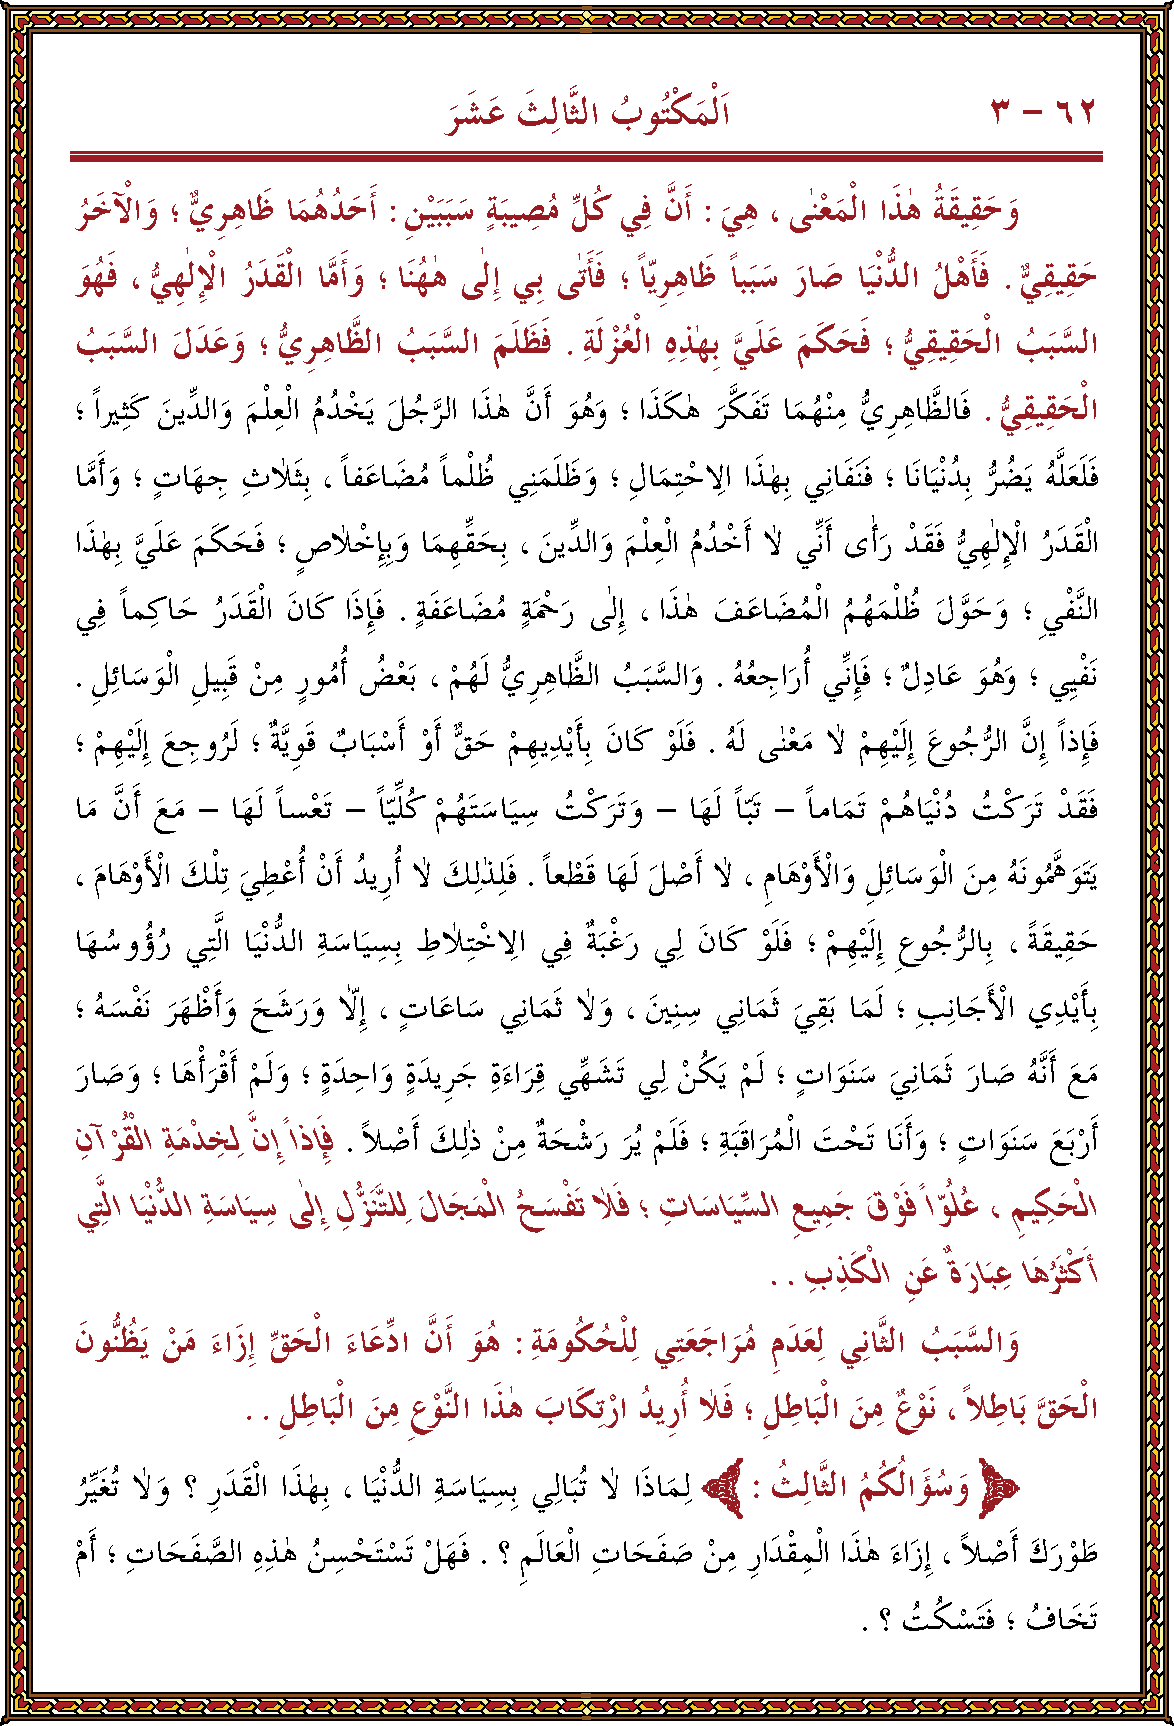 ٦٢ - ٣ اَلْمَكْتُوبُ الثَّالِثَ عَشَرَ
وَحَقِيقَةُ هٰذَا الْمَعْنٰى ، هِيَ : أَنَّ فِي كُلِّ مُصِيبَةٍ سَبَبَيْنِ : أَحَدُهُمَا ظَاهِرِيٌّ ؛ وَالْآخَرُ
حَقِيقِيٌّ . فَأَهْلُ الدُّنْيَا صَارَ سَبَباً ظَاهِرِيّاً ؛ فَأَتٰى بِي إِلٰى هٰهُنَا ؛ وَأَمَّا الْقَدَرُ الْإِلٰهِيُّ ، فَهُوَ
السَّبَبُ الْحَقِيقِيُّ ؛ فَحَكَمَ عَلَيَّ بِهٰذِهِ الْعُزْلَةِ . فَظَلَمَ السَّبَبُ الظَّاهِرِيُّ ؛ وَعَدَلَ السَّبَبُ
الْحَقِيقِيُّ . فَالظَّاهِرِيُّ مِنْهُمَا تَفَكَّرَ هٰكَذَا ؛ وَهُوَ أَنَّ هٰذَا الرَّجُلَ يَخْدُمُ الْعِلْمَ وَالدِّينَ كَثِيراً ؛
فَلَعَلَّهُ يَضُرُّ بِدُنْيَانَا ؛ فَنَفَانِي بِهٰذَا الِاحْتِمَالِ ؛ وَظَلَمَنِي ظُلْماً مُضَاعَفاً ، بِثَلَاثِ جِهَاتٍ ؛ وَأَمَّا
الْقَدَرُ الْإِلٰهِيُّ فَقَدْ رَأٰى أَنِّي لَا أَخْدُمُ الْعِلْمَ وَالدِّينَ ، بِحَقِّهِمَا وَبِإِخْلَاصٍ ؛ فَحَكَمَ عَلَيَّ بِهٰذَا
النَّفْيِ ؛ وَحَوَّلَ ظُلْمَهُمُ الْمُضَاعَفَ هٰذَا ، إِلٰى رَحْمَةٍ مُضَاعَفَةٍ . فَإِذَا كَانَ الْقَدَرُ حَاكِماً فِي
نَفْيِي ؛ وَهُوَ عَادِلٌ ؛ فَإِنِّي أُرَاجِعُهُ . وَالسَّبَبُ الظَّاهِرِيُّ لَهُمْ ، بَعْضُ أُمُورٍ مِنْ قَبِيلِ الْوَسَائِلِ .
فَإِذاً إِنَّ الرُّجُوعَ إِلَيْهِمْ لَا مَعْنٰى لَهُ . فَلَوْ كَانَ بِأَيْدِيهِمْ حَقٌّ أَوْ أَسْبَابٌ قَوِيَّةٌ ؛ لَرُوجِعَ إِلَيْهِمْ ؛
فَقَدْ تَرَكْتُ دُنْيَاهُمْ تَمَاماً - تَبّاً لَهَا - وَتَرَكْتُ سِيَاسَتَهُمْ كُلِّيّاً - تَعْساً لَهَا - مَعَ أَنَّ مَا
يَتَوَهَّمُونَهُ مِنَ الْوَسَائِلِ وَالْأَوْهَامِ ، لَا أَصْلَ لَهَا قَطْعاً . فَلِذٰلِكَ لَا أُرِيدُ أَنْ أُعْطِيَ تِلْكَ الْأَوْهَامَ ،
حَقِيقَةً ، بِالرُّجُوعِ إِلَيْهِمْ ؛ فَلَوْ كَانَ لِي رَغْبَةٌ فِي الِاخْتِلَاطِ بِسِيَاسَةِ الدُّنْيَا الَّتِي رُؤُوسُهَا
بِأَيْدِي الْأَجَانِبِ ؛ لَمَا بَقِيَ ثَمَانِي سِنِينَ ، وَلَا ثَمَانِي سَاعَاتٍ ، إِلَّا وَرَشَحَ وَأَظْهَرَ نَفْسَهُ ؛
مَعَ أَنَّهُ صَارَ ثَمَانِيَ سَنَوَاتٍ ؛ لَمْ يَكُنْ لِي تَشَهِّي قِرَاءَةِ جَرِيدَةٍ وَاحِدَةٍ ؛ وَلَمْ أَقْرَأْهَا ؛ وَصَارَ
أَرْبَعَ سَنَوَاتٍ ؛ وَأَنَا تَحْتَ الْمُرَاقَبَةِ ؛ فَلَمْ يُرَ رَشْحَةٌ مِنْ ذٰلِكَ أَصْلاً . فَإِذاً إِنَّ لِخِدْمَةِ الْقُرْآنِ
الْحَكِيمِ ، عُلُوّاً فَوْقَ جَمِيعِ السِّيَاسَاتِ ؛ فَلَا تَفْسَحُ الْمَجَالَ لِلتَّنَزُّلِ إِلٰى سِيَاسَةِ الدُّنْيَا الَّتِي
أَكْثَرُهَا عِبَارَةٌ عَنِ الْكَذِبِ . .
وَالسَّبَبُ الثَّانِي لِعَدَمِ مُرَاجَعَتِي لِلْحُكُومَةِ : هُوَ أَنَّ ادِّعَاءَ الْحَقِّ إِزَاءَ مَنْ يَظُنُّونَ
الْحَقَّ بَاطِلاً ، نَوْعٌ مِنَ الْبَاطِلِ ؛ فَلَا أُرِيدُ ارْتِكَابَ هٰذَا النَّوْعِ مِنَ الْبَاطِلِ . .
وَسُؤَالُكُمُ الثَّالِثُ : لِمَاذَا لَا تُبَالِي بِسِيَاسَةِ الدُّنْيَا ، بِهٰذَا الْقَدَرِ ؟ وَلَا تُغَيِّرُ
طَوْرَكَ أَصْلاً ، إِزَاءَ هٰذَا الْمِقْدَارِ مِنْ صَفَحَاتِ الْعَالَمِ ؟ . فَهَلْ تَسْتَحْسِنُ هٰذِهِ الصَّفَحَاتِ ؛ أَمْ
تَخَافُ ؛ فَتَسْكُتُ ؟ .